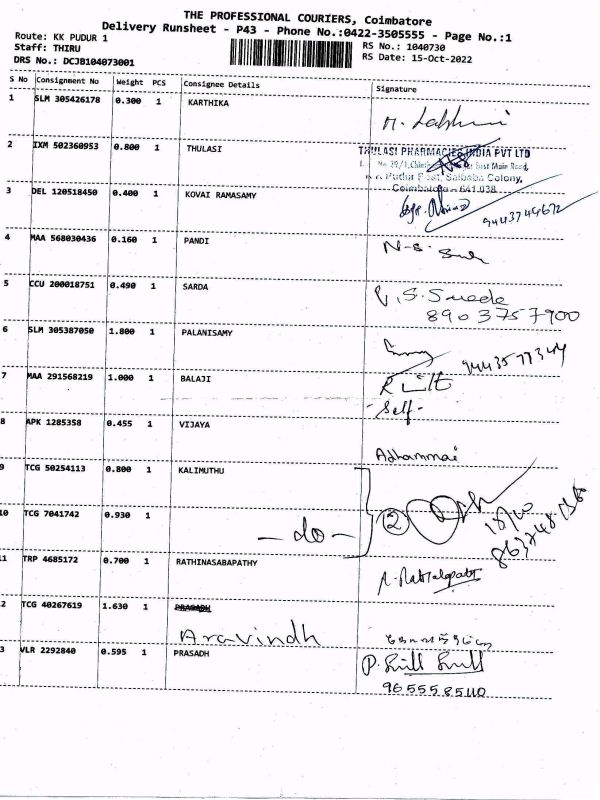 THE PROFESSIONAL COURIERS, Coimbatore
Delivery Runsheet - P43 - Phone No.:0422-3505555 - Page No.:1
Route: KK PUDUR 1
RS No.: 1040730
Staff: THIRU
RS Date: 15-Oct-2022
DRS No.: DCJB104073001
S No Consignment No Weight PCS Consignee Details Signature
1 SLM 305426178 0.300 1 KARTHIKA
2 IXM 502360953 0.800 1 THULASI
THULASI PHARMACIES INDIA PVT LTD
East Main Road,
Saibaba Colony,
Coimbatore - 641 038
3 DEL 120518450 0.400 1 KOVAI RAMASAMY
9443744672
4 MAA 568030436 0.160 1 PANDI
5 CCU 200018751 0.490 1 SARDA
8903757900
6 SLM 305387050 1.800 1 PALANISAMY
7 MAA 291568219 1.000 1 BALAJI
-Self-
8 APK 1285358 0.455 1 VIJAYA
9 TCG 50254113 0.800 1 KALIMUTHU
10 TCG 7041742 0.930 1
- do - 2
11 TRP 4685172 0.700 1 RATHINASABAPATHY
12 TCG 40267619 1.630 1 PRASADH
Aravindh
13 VLR 2292840 0.595 1 PRASADH
9655585110